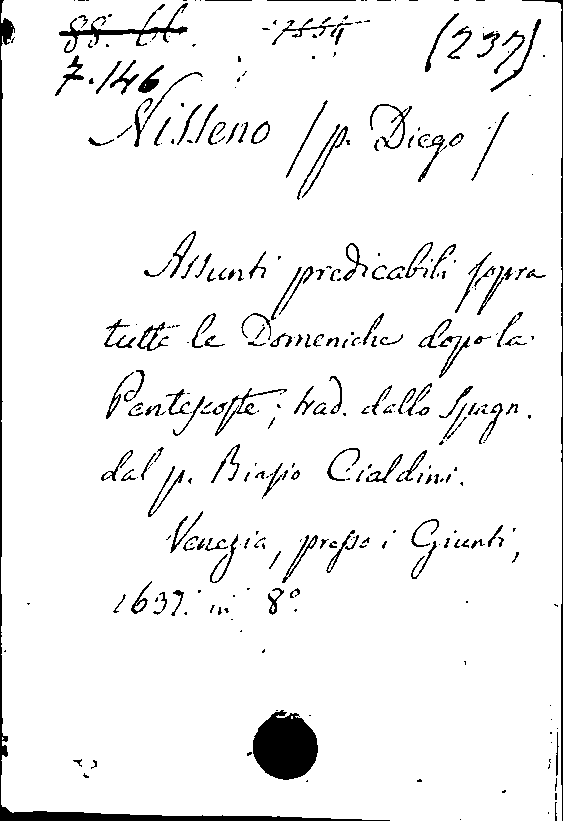 88. 66. 7554 (237)
7.146
Nisseno / p. Diego /
Assunti predicabili sopra
tutte le Domeniche dopo la
Pentecoste; trad. dallo Spagn.
dal p. Biasio Cialdini.
Venezia, presso i Giunti,
1637. in 8°.